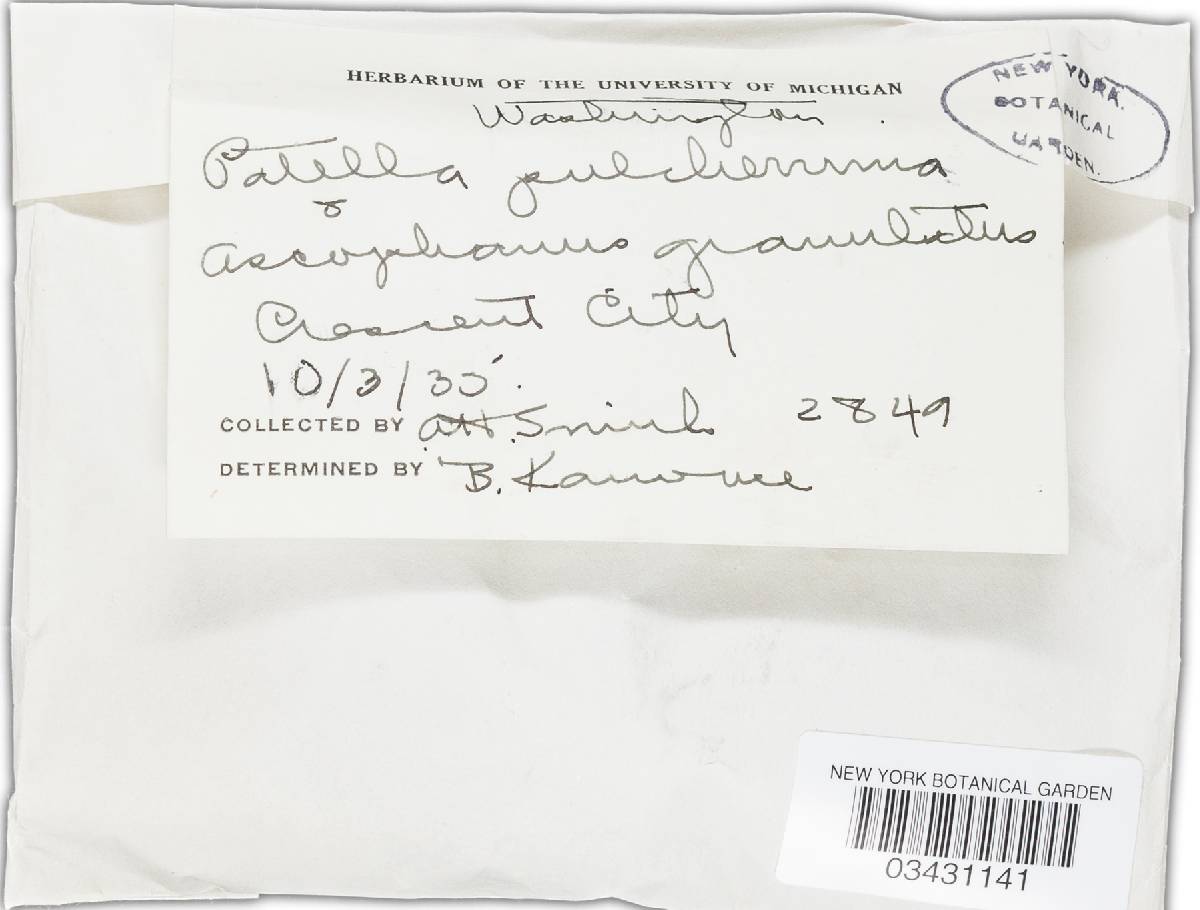 HERBARIUM OF THE UNIVERSITY OF MICHIGAN
Washington
Patella pulcherrima
&
Ascophanus granulatus
Crescent City
10/3/35.
COLLECTED BY AH. Smith 2849
DETERMINED BY B. Kanouse
NEW YORK
BOTANICAL
GARDEN.
NEW YORK BOTANICAL GARDEN
03431141